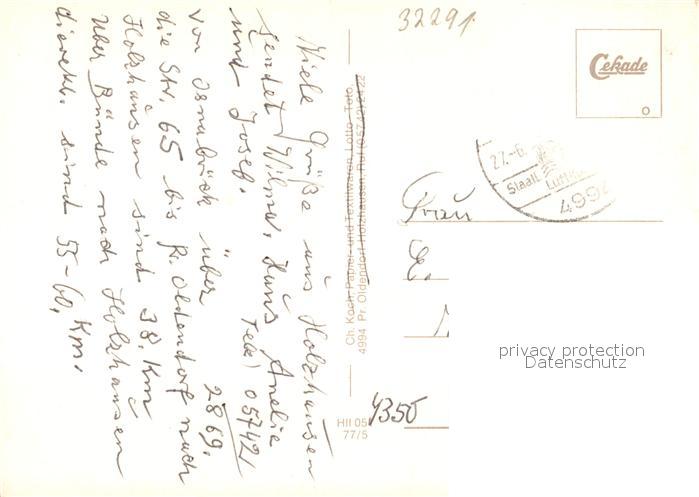 32291
Cekade
Viele Grüße aus Holzhausen
sendet Wilma, Hans Anelia
und Josef. Tel.) 05742/
2869.
von Osnabrück über
die Str. 65 bis Pr. Oldendorf nach
Holzhausen sind 38 Km
über Bünde nach Holzhausen
sind 55-60 Km.
Ch. Koch, Papier- und Textilwaren, Lotto-Toto,
4994 Pr. Oldendorf-Holzhausen, Ruf (05742) 2422
HII 05
77/5
27.-6.
Staatl. Luftku
499
Frau
4350
privacy protection
Datenschutz